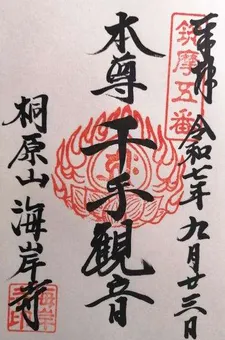 奉拝 令和七年 九月廿三日
筑摩五番
本尊 千手観音
桐原山 海岸寺
海岸寺印